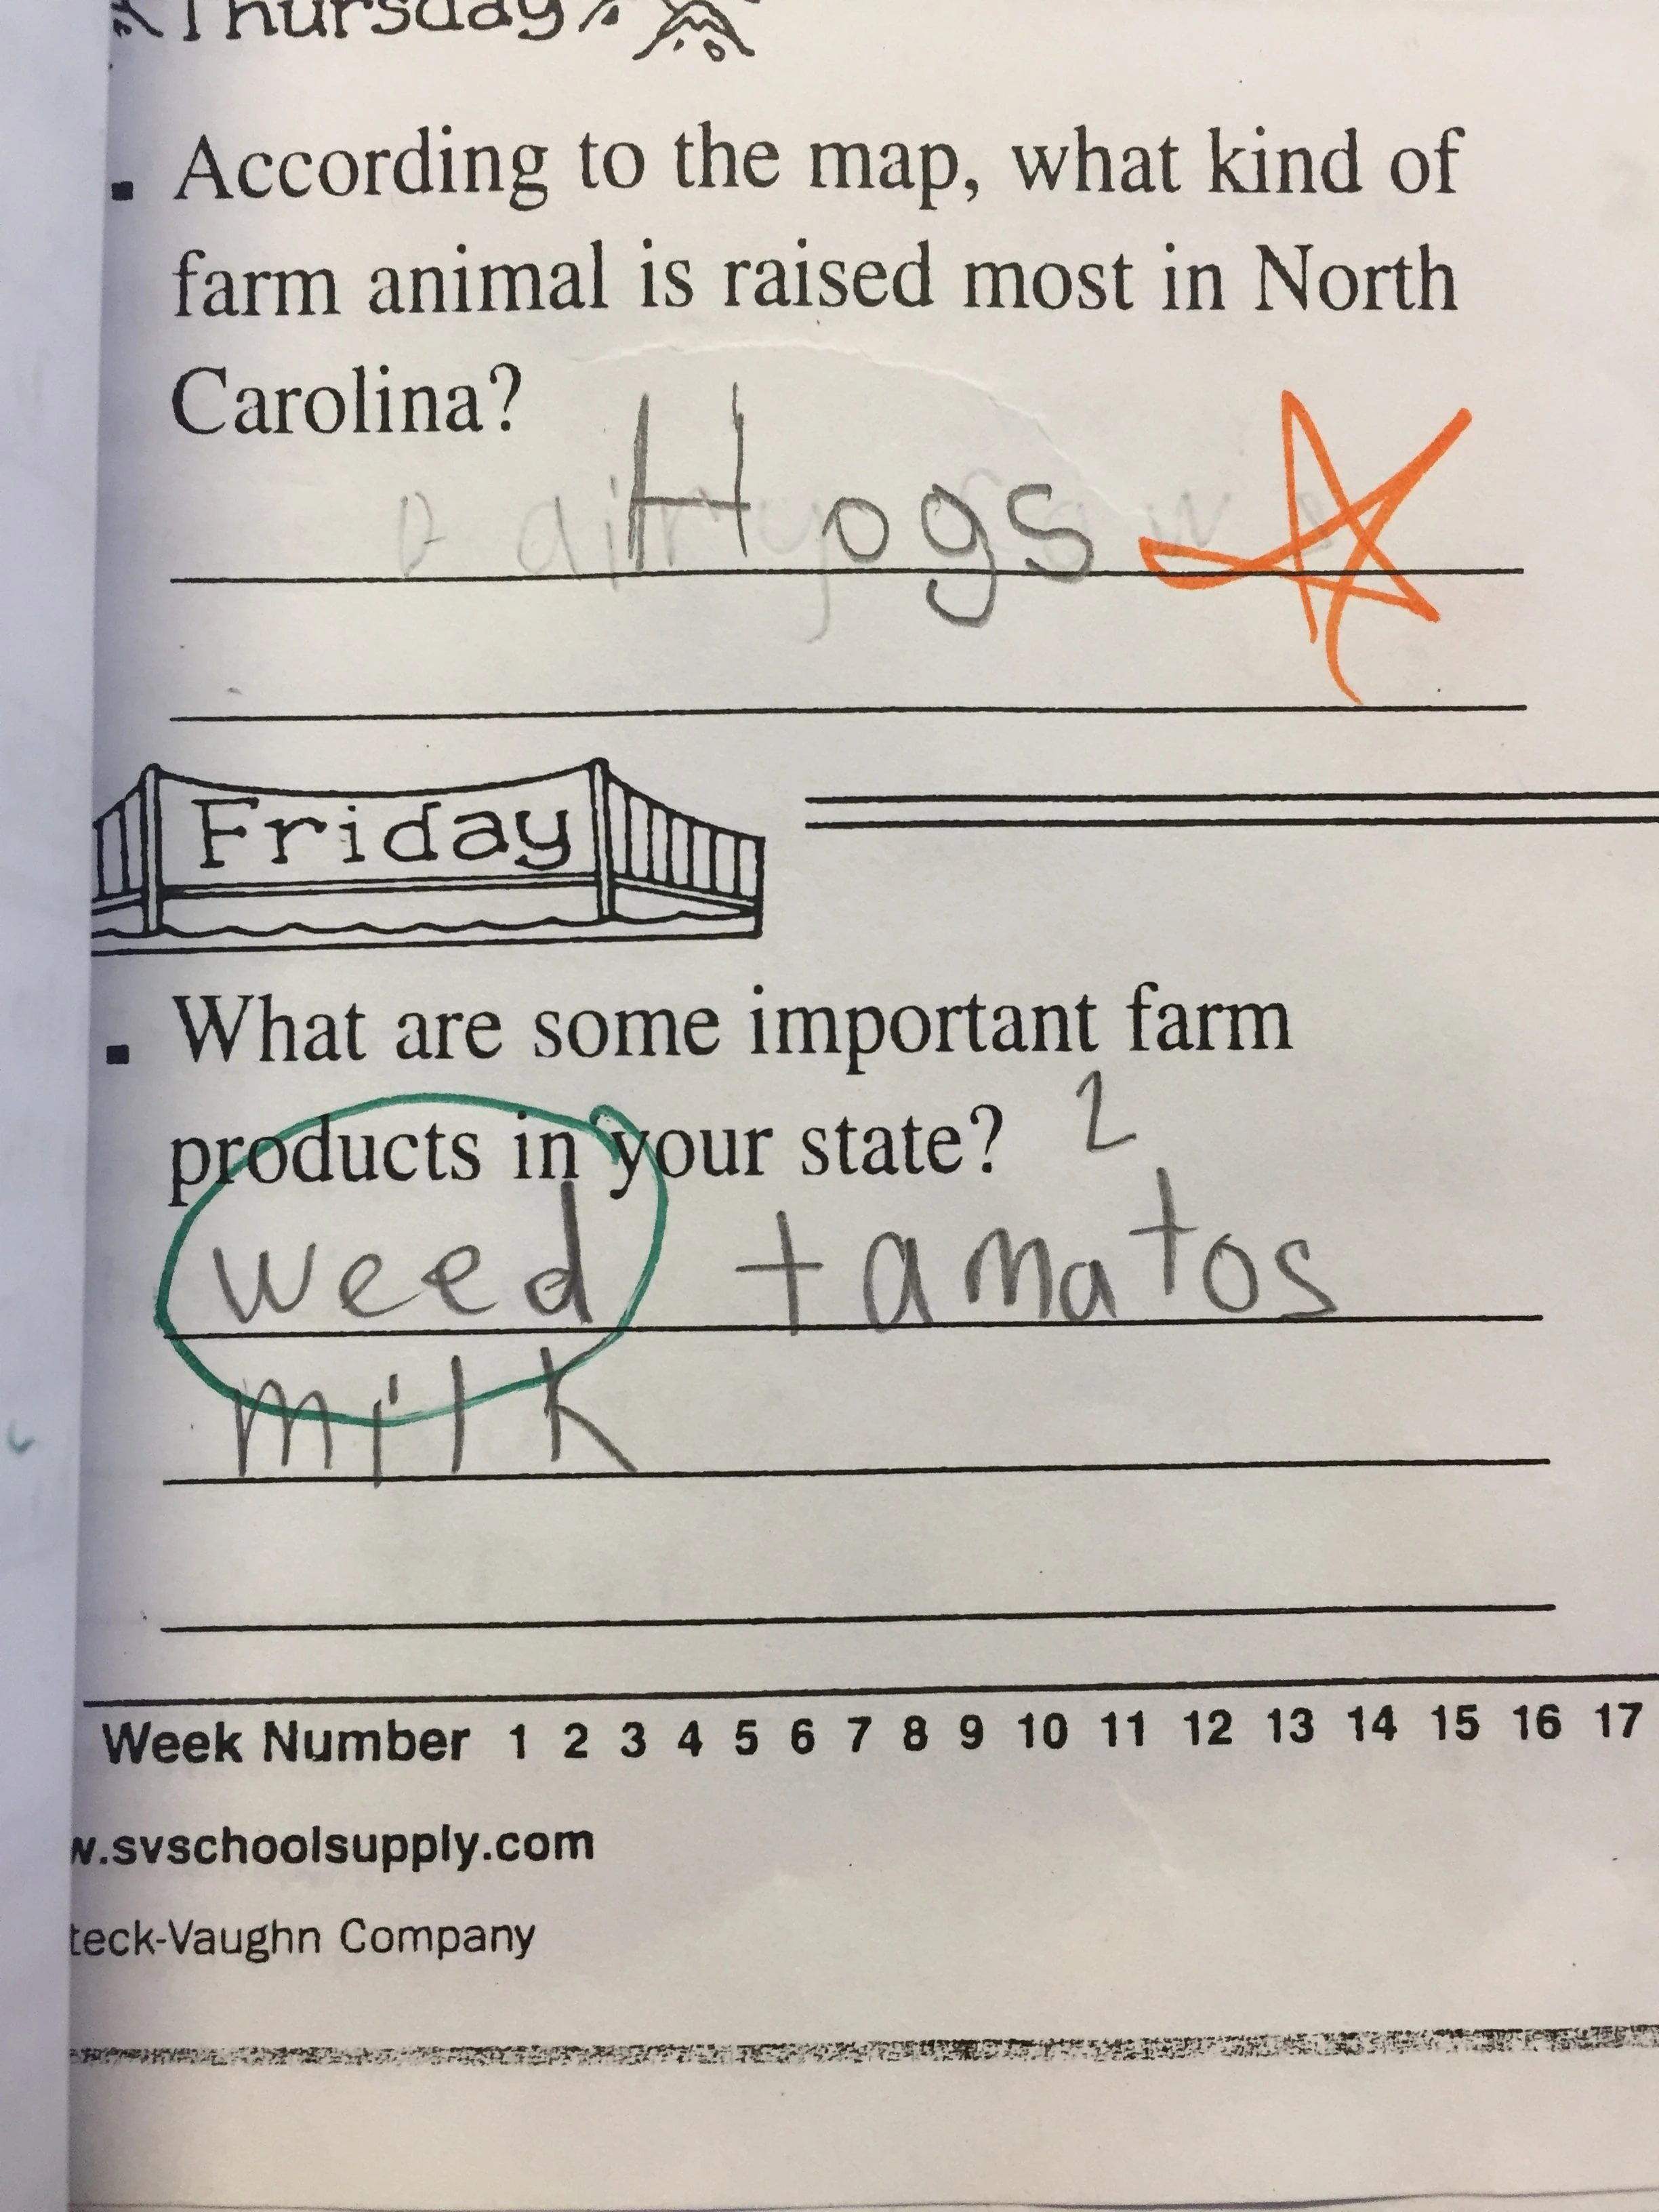 Thursday
. According to the map, what kind of
farm animal is raised most in North
Carolina?
Hogs
Friday
. What are some important farm
products in your state? 2
weed tamatos
milk
Week Number 1 2 3 4 5 6 7 8 9 10 11 12 13 14 15 16 17
w.svschoolsupply.com
teck-Vaughn Company